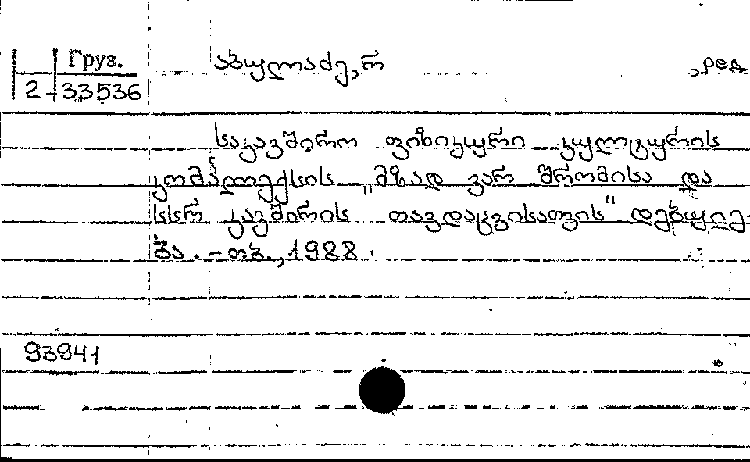 Груз.
2-33536
აბულაძე, რ
, ред.
საკავშირო ფიზიკური კულტურის
კომპლექსის „მზად ვარ შრომისა და
სსრ კავშირის თავდაცვისათვის" დებულე-
ბა. -თბ., 1988.
93941